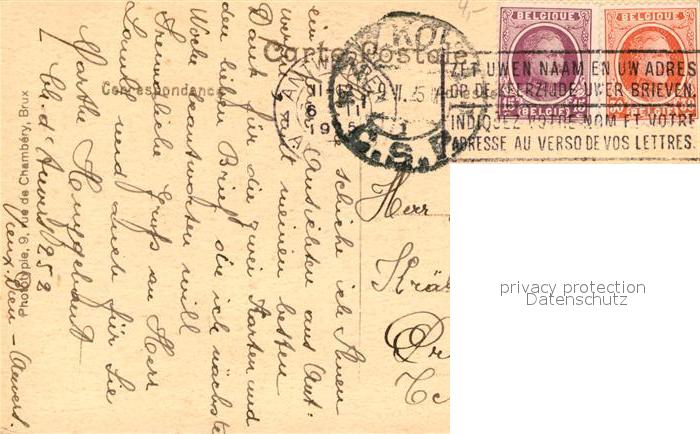 4,-
Carte Postale
Correspondance
BELGIQUE
15 BELGIË 15
BELGIQUE
BELGIË
ZET UWEN NAAM EN UW ADRES
OP DE KEERZIJDE UWER BRIEVEN.
INDIQUEZ VOTRE NOM ET VOTRE
ADRESSE AU VERSO DE VOS LETTRES.
schicke ich Ihnen
ein Ansichten aus Ant-
werpen mit meinem besten
Dank für die zwei Karten und
den lieben Brief die ich nächste
Woche beantworten will
Freundliche Gruss an Herr
Lambl und auch für Sie
Marthe Huyghebaert
Ch. d'Anvers 252
Vieux-Dieu - Anvers.
Herr
Phototypie, 9, rue de Chambéry, Brux
privacy protection
Datenschutz